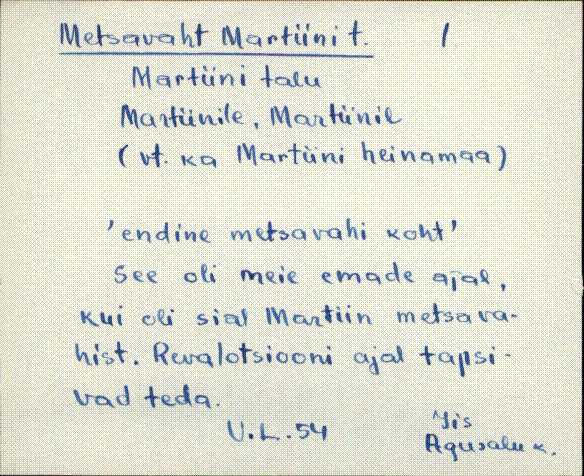 Metsavaht Martiini t. 1
Martiini talu
Martiinile, Martiinil
(vt. ka Martiini heinamaa)
'endine metsavahi koht'
See oli meie emade ajal,
kui oli sial Martiin metsava-
hist. Revalotsiooni ajal tapsi-
vad teda.
V.L.54
Iis
Agusalu k.